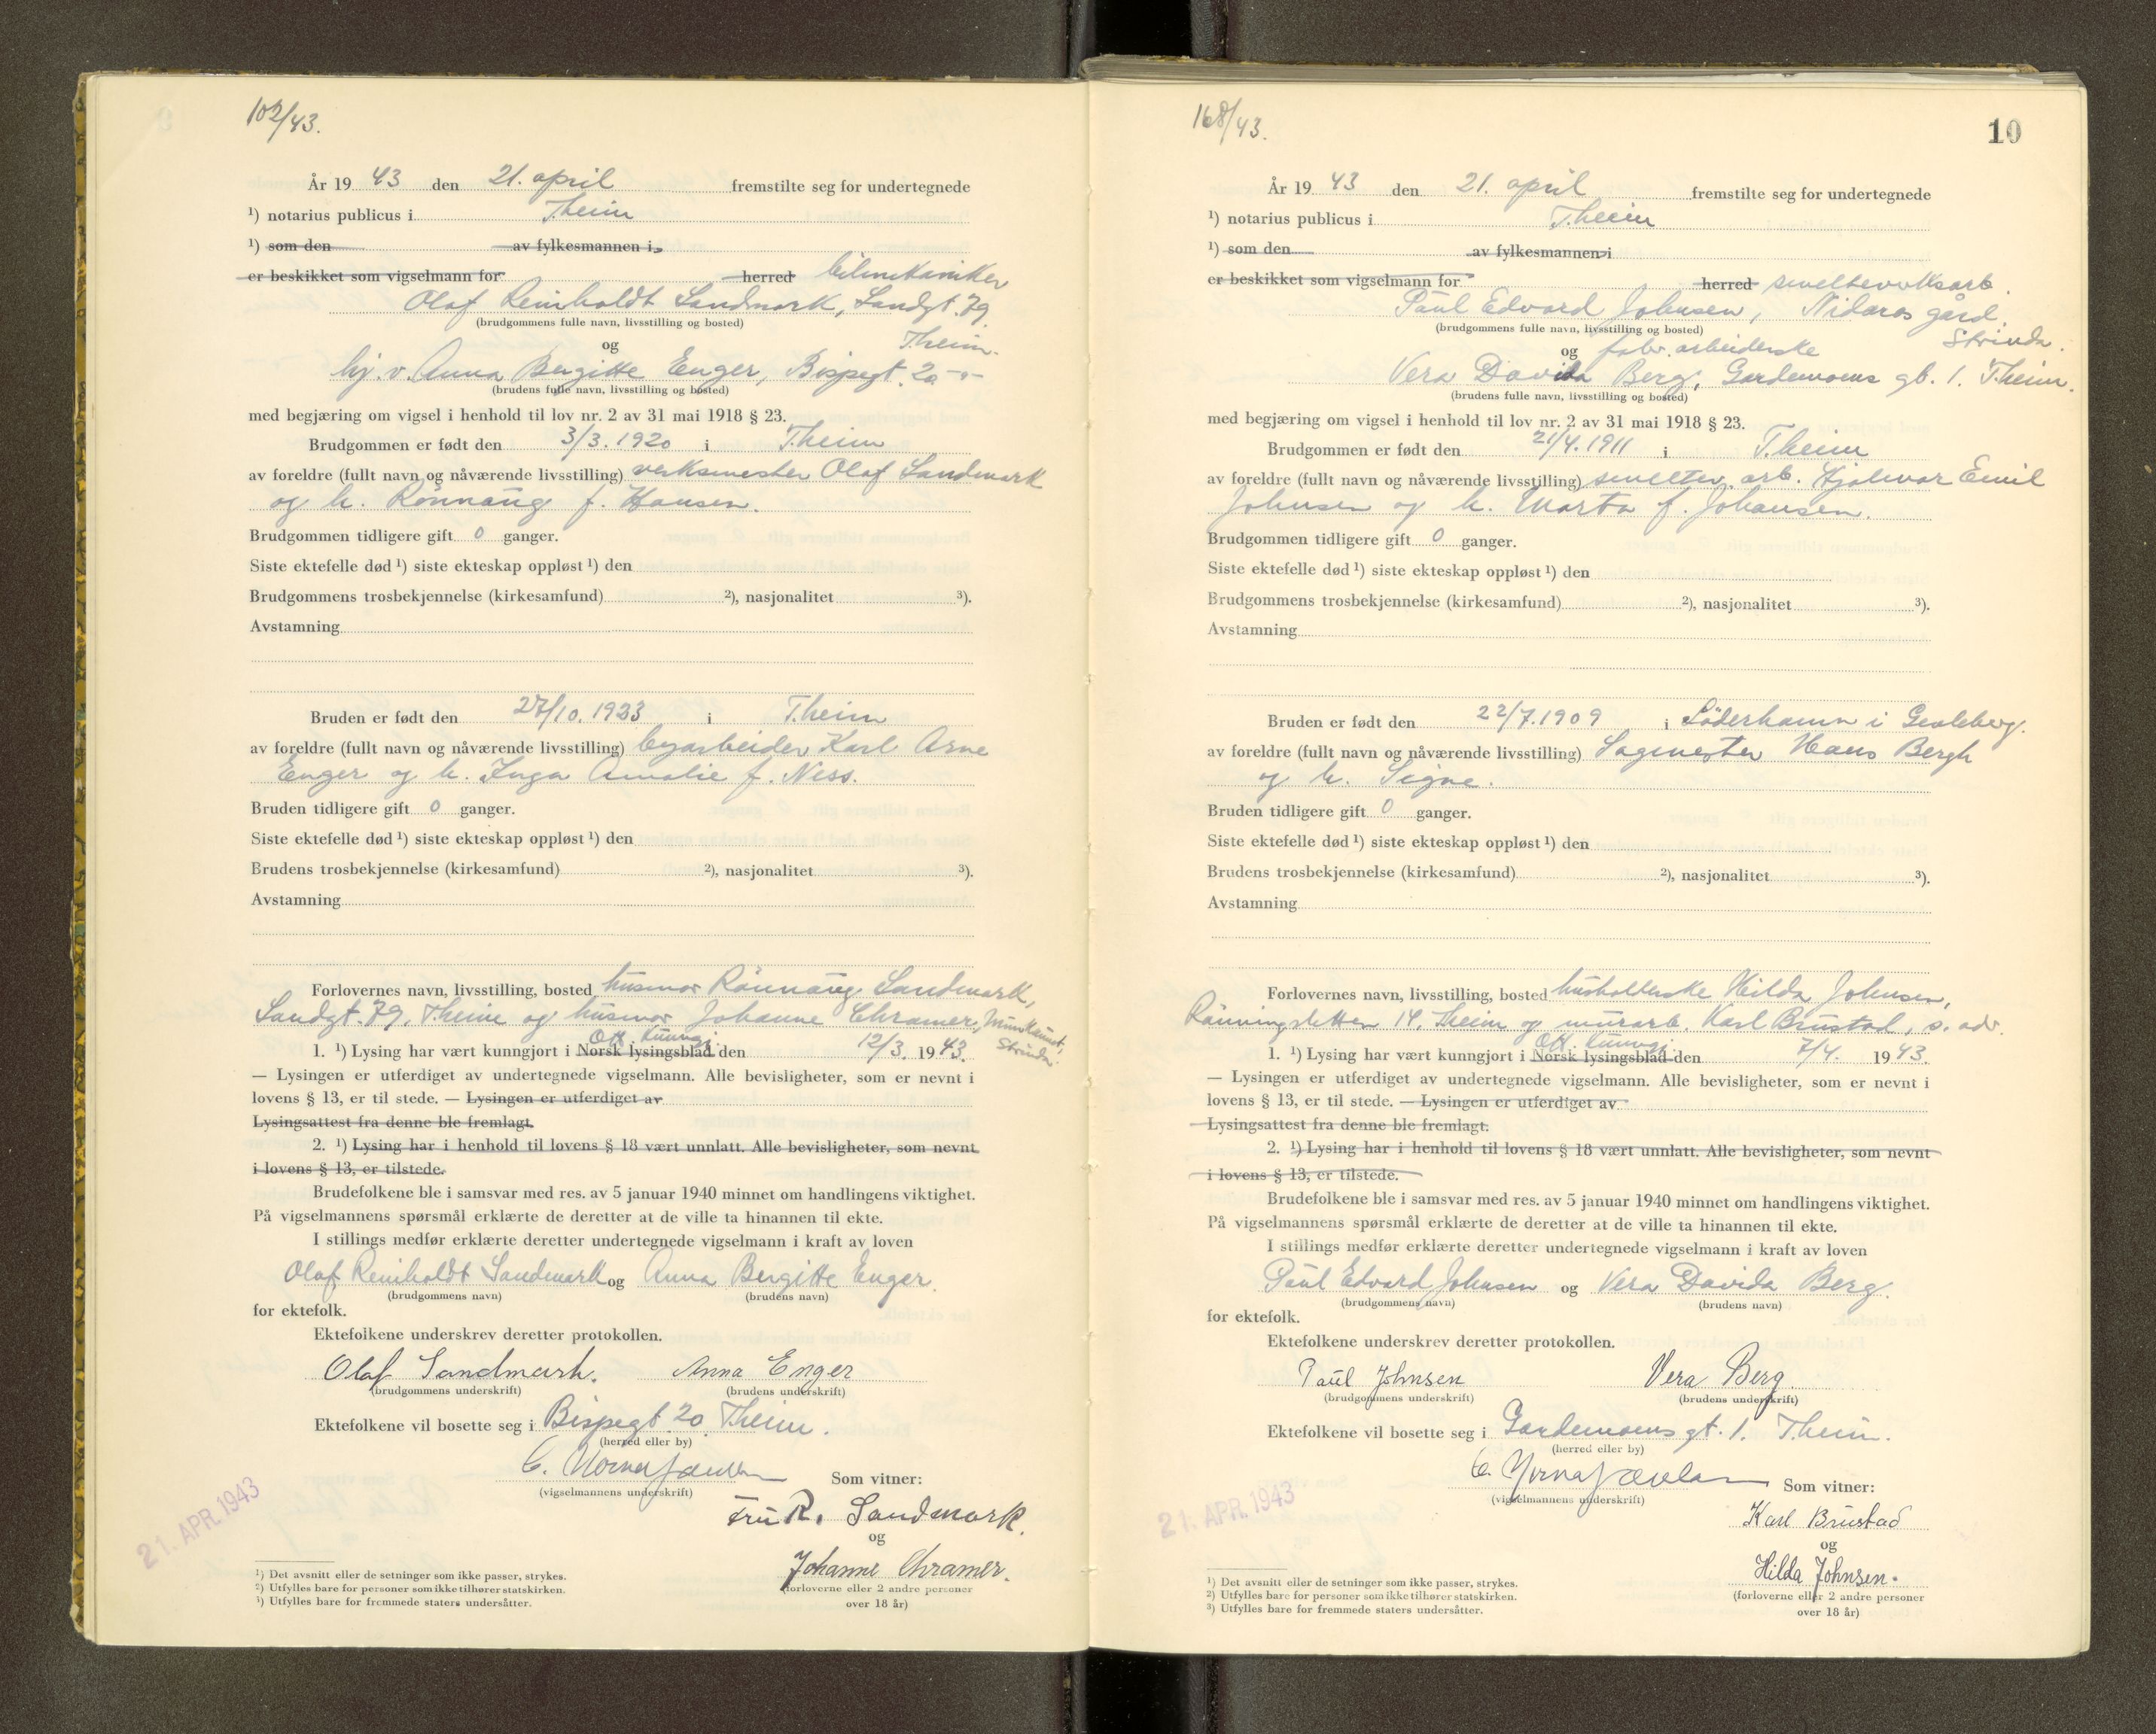 102/43.
År 19 43 den 21. april fremstilte seg for undertegnede
¹) notarius publicus i Theim
¹) som den av fylkesmannen i
er beskikket som vigselmann for herred bilmekaniker
Olaf Reinholdt Sandmark, Sandgt. 79
(brudgommens fulle navn, livsstilling og bosted)
og Theim.
hj. v. Anna Bergitte Enger, Bispegt. 20 -"-
(brudens fulle navn, livsstilling og bosted)
med begjæring om vigsel i henhold til lov nr. 2 av 31 mai 1918 § 23.
Brudgommen er født den 3/3. 1920 i Theim
av foreldre (fullt navn og nåværende livsstilling) verksmester Olaf Sandmark
og h. Rönnaug f. Hansen.
Brudgommen tidligere gift 0 ganger.
Siste ektefelle død ¹) siste ekteskap oppløst ¹) den
Brudgommens trosbekjennelse (kirkesamfund) ²), nasjonalitet ³).
Avstamning
Bruden er født den 27/10. 1923 i Theim
av foreldre (fullt navn og nåværende livsstilling) byarbeider Karl Arne
Enger og h. Inga Amalie f. Ness.
Bruden tidligere gift 0 ganger.
Siste ektefelle død ¹) siste ekteskap oppløst ¹) den
Brudens trosbekjennelse (kirkesamfund) ²), nasjonalitet ³).
Avstamning
Forlovernes navn, livsstilling, bosted husmor Rönnaug Sandmark,
Sandgt. 79, Theim og husmor Johanne Chramer,
Strinda.
Off. kunngj.
1. ¹) Lysing har vært kunngjort i Norsk lysingsblad den 12/3. 19 43.
— Lysingen er utferdiget av undertegnede vigselmann. Alle bevisligheter, som er nevnt i
lovens § 13, er til stede. — Lysingen er utferdiget av
Lysingsattest fra denne ble fremlagt.
2. ¹) Lysing har i henhold til lovens § 18 vært unnlatt. Alle bevisligheter, som nevnt
i lovens § 13, er tilstede.
Brudefolkene ble i samsvar med res. av 5 januar 1940 minnet om handlingens viktighet.
På vigselmannens spørsmål erklærte de deretter at de ville ta hinannen til ekte.
I stillings medfør erklærte deretter undertegnede vigselmann i kraft av loven
Olaf Reinholdt Sandmark og Anna Bergitte Enger.
(brudgommens navn) (brudens navn)
for ektefolk.
Ektefolkene underskrev deretter protokollen.
Olaf Sandmark. Anna Enger
(brudgommens underskrift) (brudens underskrift)
Ektefolkene vil bosette seg i Bispegt. 20 Theim.
(herred eller by)
Som vitner:
(vigselmannens underskrift)
Fru R. Sandmark.
og
Johanne Chramer.
(forloverne eller 2 andre personer
over 18 år)
21. APR. 1943
¹) Det avsnitt eller de setninger som ikke passer, strykes.
²) Utfylles bare for personer som ikke tilhører statskirken.
³) Utfylles bare for fremmede staters undersåtter.
168/43.
10
År 19 43 den 21. april fremstilte seg for undertegnede
¹) notarius publicus i Theim
¹) som den av fylkesmannen i
er beskikket som vigselmann for herred smelteverksarb.
Paul Edvard Johnsen, Nidaros gård,
(brudgommens fulle navn, livsstilling og bosted) Strinda.
og fabr. arbeiderske
Vera Davida Berg, Gardemoens gt. 1. Theim.
(brudens fulle navn, livsstilling og bosted)
med begjæring om vigsel i henhold til lov nr. 2 av 31 mai 1918 § 23.
Brudgommen er født den 21/4. 1911 i Theim
av foreldre (fullt navn og nåværende livsstilling) smeltev. arb. Hjalmar Emil
Johnsen og h. Marta f. Johansen.
Brudgommen tidligere gift 0 ganger.
Siste ektefelle død ¹) siste ekteskap oppløst ¹) den
Brudgommens trosbekjennelse (kirkesamfund) ²), nasjonalitet ³).
Avstamning
Bruden er født den 22/7. 1909 i Söderhamn i Gevleborg.
av foreldre (fullt navn og nåværende livsstilling) Sagmester Hans Bergh
og h. Signe.
Bruden tidligere gift 0 ganger.
Siste ektefelle død ¹) siste ekteskap oppløst ¹) den
Brudens trosbekjennelse (kirkesamfund) ²), nasjonalitet ³).
Avstamning
Forlovernes navn, livsstilling, bosted husholderske Hilda Johnsen,
Rönningsletten 14, Theim og murarb. Karl Brustad, s. adr.
Off. kunngj.
1. ¹) Lysing har vært kunngjort i Norsk lysingsblad den 7/4. 19 43.
— Lysingen er utferdiget av undertegnede vigselmann. Alle bevisligheter, som er nevnt i
lovens § 13, er til stede. — Lysingen er utferdiget av
Lysingsattest fra denne ble fremlagt.
2. ¹) Lysing har i henhold til lovens § 18 vært unnlatt. Alle bevisligheter, som nevnt
i lovens § 13, er tilstede.
Brudefolkene ble i samsvar med res. av 5 januar 1940 minnet om handlingens viktighet.
På vigselmannens spørsmål erklærte de deretter at de ville ta hinannen til ekte.
I stillings medfør erklærte deretter undertegnede vigselmann i kraft av loven
Paul Edvard Johnsen og Vera Davida Berg.
(brudgommens navn) (brudens navn)
for ektefolk.
Ektefolkene underskrev deretter protokollen.
Paul Johnsen Vera Berg
(brudgommens underskrift) (brudens underskrift)
Ektefolkene vil bosette seg i Gardemoens gt. 1. Theim.
(herred eller by)
Som vitner:
(vigselmannens underskrift)
Karl Brustad
og
Hilda Johnsen.
(forloverne eller 2 andre personer
over 18 år)
21. APR. 1943
¹) Det avsnitt eller de setninger som ikke passer, strykes.
²) Utfylles bare for personer som ikke tilhører statskirken.
³) Utfylles bare for fremmede staters undersåtter.